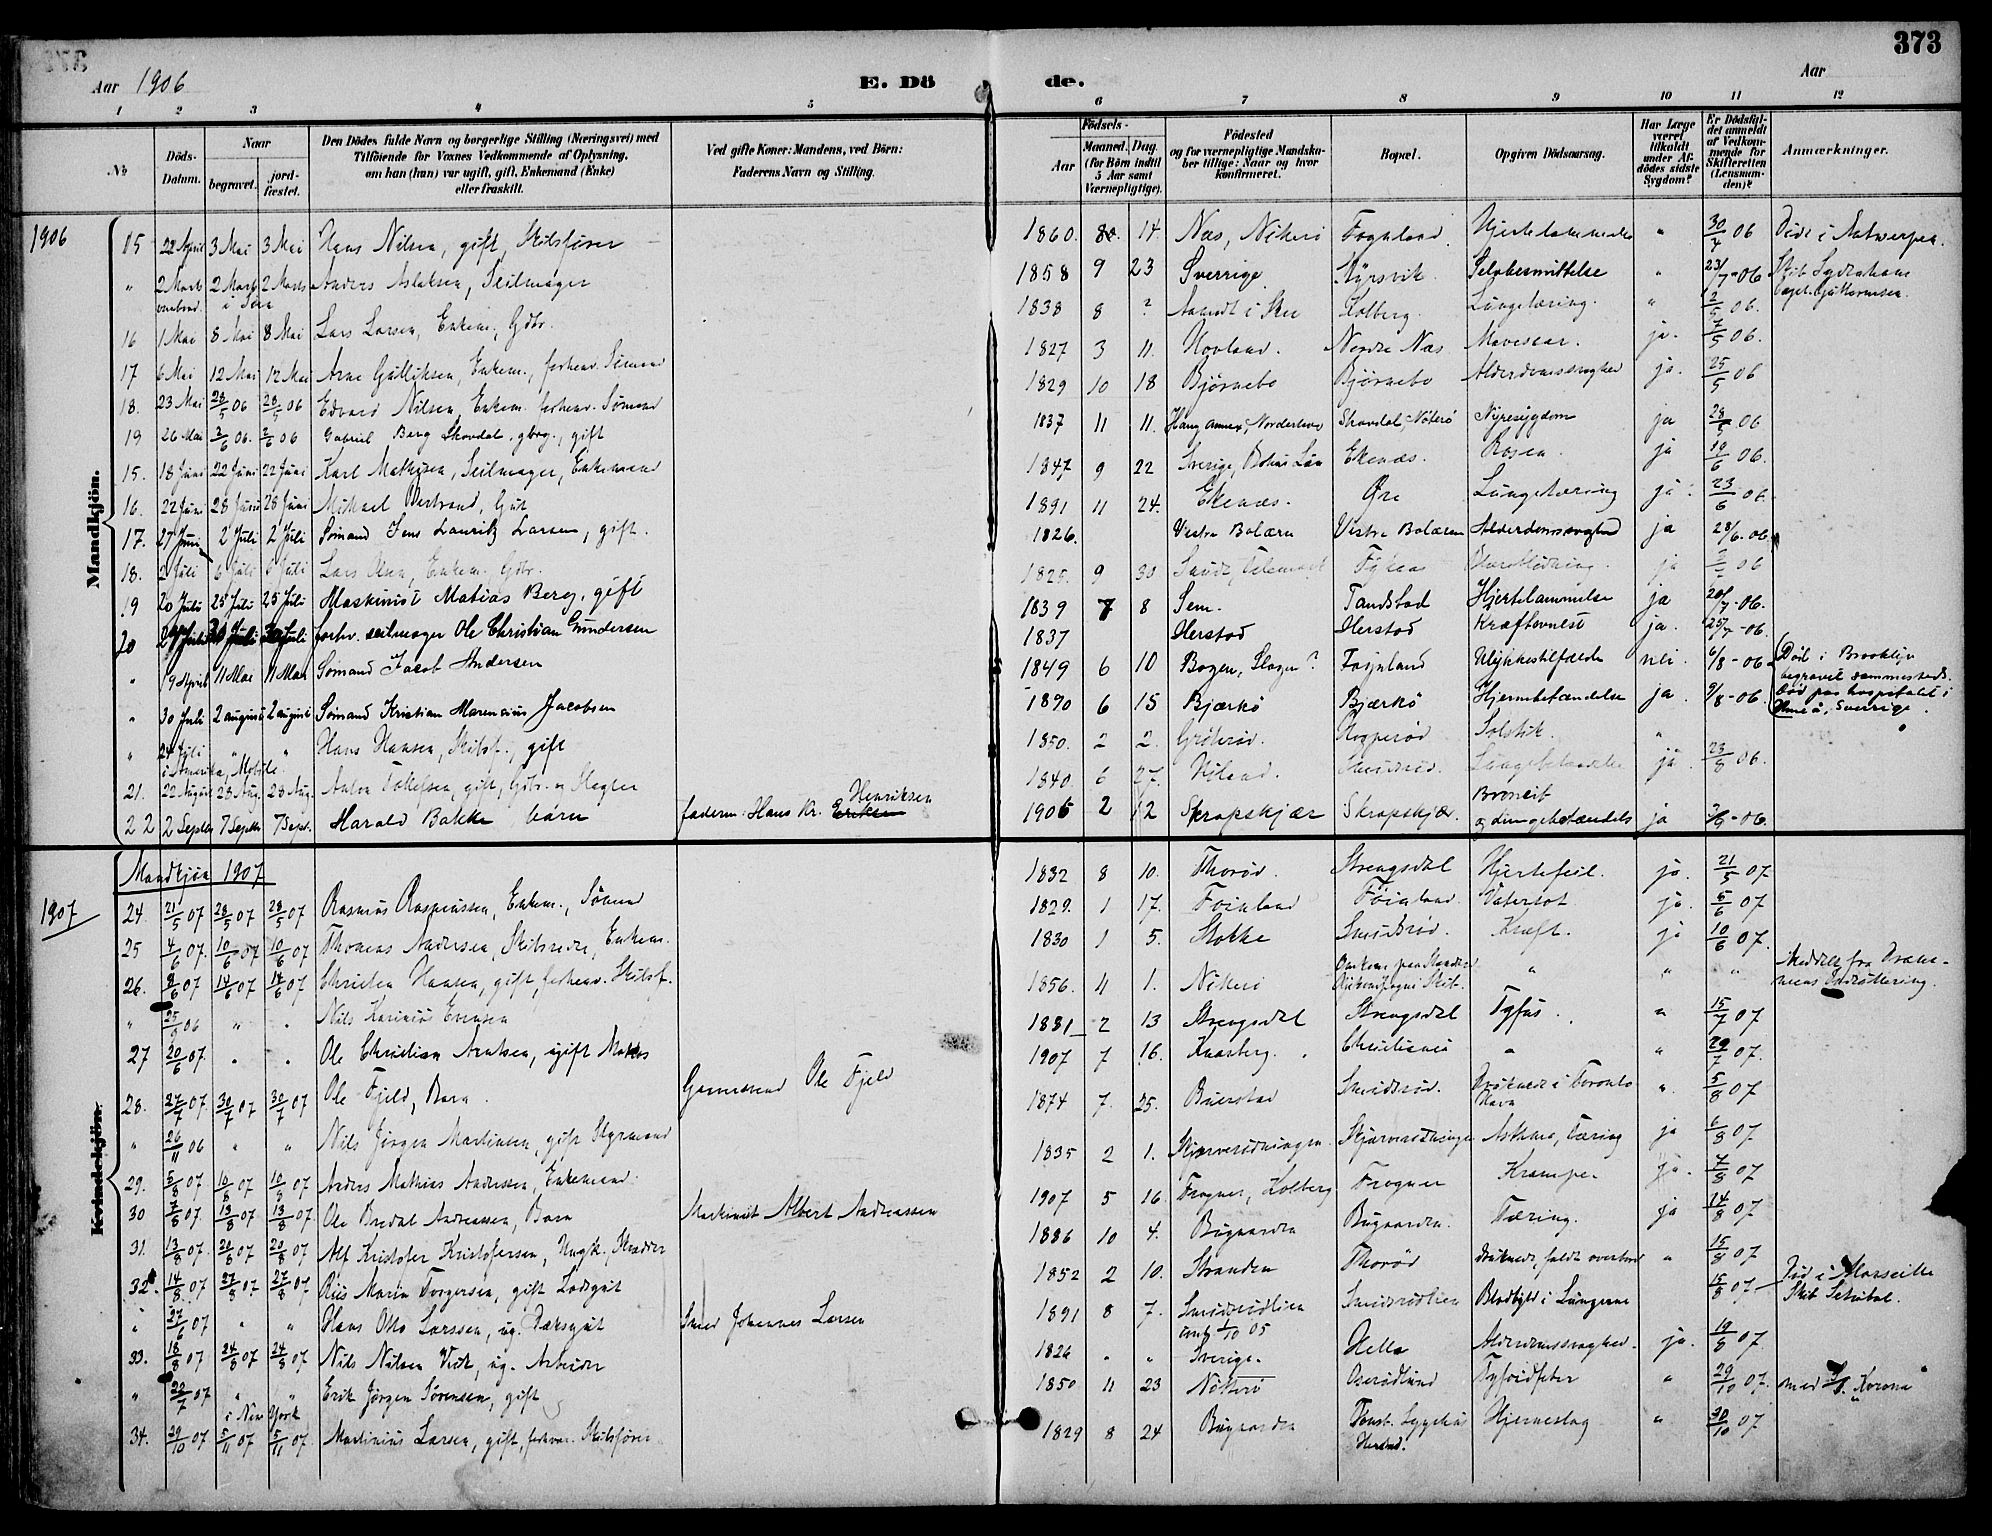 373
Aar 1906
E. Dö de.
Aar
1 2 3 4 5 6 7 8 9 10 11 12
№
Döds-Datum.
Naar
begravet.
jordfæstet.
Den Dödes fulde Navn og borgerlige Stilling (Næringsvei) med
Tilföiende for Voxnes Vedkommende af Oplysning,
om han (hun) var ugift, gift, Enkemand (Enke)
eller fraskilt.
Ved gifte Koner: Mandens, ved Börn:
Faderens Navn og Stilling.
Födsels-
Aar
Maaned. Dag.
(for Börn indtil
5 Aar samt
Værnepligtige).
Födested
og for værnepligtige Mandska-
ber tillige: Naar og hvor
konfirmeret.
Bopæl.
Opgiven Dödsaarsag.
Har Læge
været
tilkaldt
under Af-
dödes sidste
Sygdom?
Er Dödsfal-
det anmeldt
af Vedkom-
mende for
Skifteretten
(Lensman-
den)?
Anmærkninger.
Mandkjön.
1906
15 22 April 3 Mai 3 Mai Hans Nilsen, gift, Skibsfører 1860. 14. Næs, Nøterø Føynland Hjertelammelse " 30/4 06 Død i Antwerpen.
" 2 Marts 2 Marts 2 Marts Anders Aslaksen, Seilmager 1858 9 23 Sverrige Kjørsvik Selvbesmittelse " 23/7-06
ombord i Søen
16 1 Mai 8 Mai 8 Mai Lars Larsen, Enkem., Gdbr. 1838 8 ? Aamodt i Kolberg. Lungetæring. " 2/5 06.
17 6 Mai 12 Mai 12 Mai Arne Gulliksen, Enkem., forhenv. Sømand 1827 3 11. Hovland. Nordre Næs Mavesaar. ja. 7/5 06.
18. 23 Mai 28/5 06 28/5 06 Edvard Nilsen, Enkem. forhenv. Sømand 1829 10 18 Bjørnebo Bjørnebo Alderdomssvaghed ja. 25/5 06
19 26 Mai 2/6 06. 2/6 06 Gabriel Berg Skovdal, gbrg., gift 1837 11 11. Haug annex, Norderhov Skovdal, Nøterø Nyresygdom ja 28/5 06
15. 18 Juni 22 Juni 22 Juni Karl Mathisen, Seilmager, Enkemand 1847 9 22 Sverige, Bohus Län Ekenæs. Rosen. ja 19/6 06.
16. 22 Juni 28 Juni 28 Juni Mikael Bertrand, Gut 1891 11 24. Ekenæs. Øre Lungetæring ja. 23/6 06
17. 27 Juni 2 Juli 2 Juli Sømand Jens Lauritz Larsen, gift. 1826. Vestre Bolæren Vestre Bolæren Alderdomssvaghed ja 28/6. 06
18. 2 Juli 6 Juli 6 Juli Lars Olsen, Enkem., Gdbr. 1825. 9 30 Saude, Telemark ja 06
19 20 Juli 25 Juli 25 Juli Maskinist Matias Berg, gift 1839 7 8 Sem. Tandstad Hjertelammelse ja 20/7-06.
20 27 Juli 30 Juli 30 Juli forhv. seilmager Ole Christian Gundersen 1837 Herstad Herstad Kræftovnest ja. 25/7-06.
" 19 April 11 Mai 11 Mai Sømand Jacob Andersen 1849 6 10 Bogen, Slagen? Føynland Ulykkestilfælde nei. 6/8-06 Død i Brooklyn
begravet sammesteds.
" 30 Juli 2 august 2 august Sømand Kristian Marensius Jacobsen 1890 6 15 Bjærkø Bjærkø Hjernebetændelse ja. 9/8-06. død paa hospitalet i
Umeå, Sverrige.
" 24 Juli " " Hans Hansen, Skibsf., gift 1850. 2 2. Grøterød. Ropperød Solstik. "
i Amerika, Mobile.
21. 22 August 28 Aug. 28 Aug. Anton Tollefsen, gift, Gdbr. og Hegler 1840. 6 27. Smidsrød. Lungebetændelse ja. 23/8 06.
22 2 Septbr 7 Septbr 7 Sept. Harald Bakke, barn faderen: Hans Kr. Eriksen Henriksen 1906 2 12 Skrapskjær Skrapskjær Bronkit
og lungebetændels ja 3/9-06.
Mandkjön 1907
Kvindekjön.
1907
24. 21/5 07 28/5 07 28/5 07 Rasmus Rasmussen, Enkem., Sømand 1832 8 10. Thorød. Strengsdal Hjertefeil. ja. 21/5 07
25 4/6 07. 10/6 07 10/6 07 Thomas Andersen, Skibsreder, Enkem. 1829. 1 17. Føinland Føinland. Vatersot ja. 5/6 07
26. 8/6 07 14/6 07 14/6 07 Christen Hansen, gift, forhenv. Skibsf. 1830 1 5. Stokke Smidsrød. Kræft. ja 10/6 07.
" 25/9 06 " . Nils Karinius Evensen 1856. 4 1. Nøterø " " " Meddelt fra Dram-
mens Sædrøttering.
27 20/6 07. . . Ole Christian Arntsen, ugift Matros 1881 2 13 Strengsdal Strengsdal Tyfus. " 15/7 07
28. 27/7 07. 30/7 07 30/7 07 Ole Fjeld, Barn. Garmand Ole Fjeld 1907 7 16. Kaarberg. Christiania " " 29/7 07.
" 26/11 06 " " Nils Jørgen Martinsen, gift Styrmand 1874 7. 25. Buerstad Smidsrød. Druknede i Toronto
Havn " 5/8 07
29. 5/8 07 10/8 07 10/8 07 Anders Mathias Andersen, Enkemand. 1835 2 1. Skjærverødningen Asthma, Tæring ja 6/8 07
30 7/8 07. 13/8 07 13/8 07. Ole Bredal Andreassen, Barn Maskinist Albert Andreassen 1907 5 16. Frogner, Kolberg Frogner Krampe ja. 7/8 07
31. 13/8 07. 20/8 07 20/8 07 Alf Kristofer Kristofersen, Ungk. Skrædder 1886 10 4. Bugaarden Bugaarden. Tæring. ja 14/8 07
32. 14/8 07 27/8 07 27/8 07 Riis Marin Torgersen, gift Lodsgut 1852 2 10. Stranden Thorød druknede, faldt overbord " 15/8 07
" 27/6 07 " " Hans Otto Larssen, ug. Dæksgut Smed Johannes Larsen 1891 8 7. Smidsrødlien
konf. 1/10 05 Smidsrødlien Blodbyld i Lungerne 15/8 07 Død i Marseille
Skib Setubal.
33. 18/8 07 24/8 07 24/8 07 Nils Nilsen Vest, ug. Arbeider 1826 " " Sverige. Hella Alderdomssvaghed. ja. 19/8 07
" 22/7 07 " " Erik Jørgen Sørensen, gift 1850 11 23 Nøtterø Oserødlund Tyfoidfeber " 29/10 07. med Korona
i New York
34. 29/10 07 5/11 07 5/11 07 Martinius Larsen, gift, forhenv. Skibsfører. 1829 8 24 Bugaarden Tønsb. Sygehus
Herstad. Hjerneslag " 30/10 07